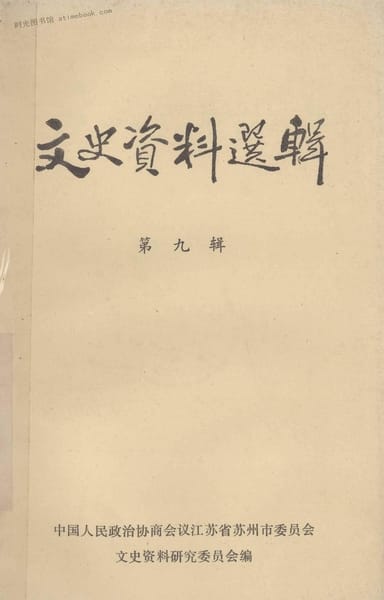 时光图书馆 atimebook.com
文史資料選輯
第九辑
中国人民政治协商会议江苏省苏州市委员会
文史资料研究委员会编